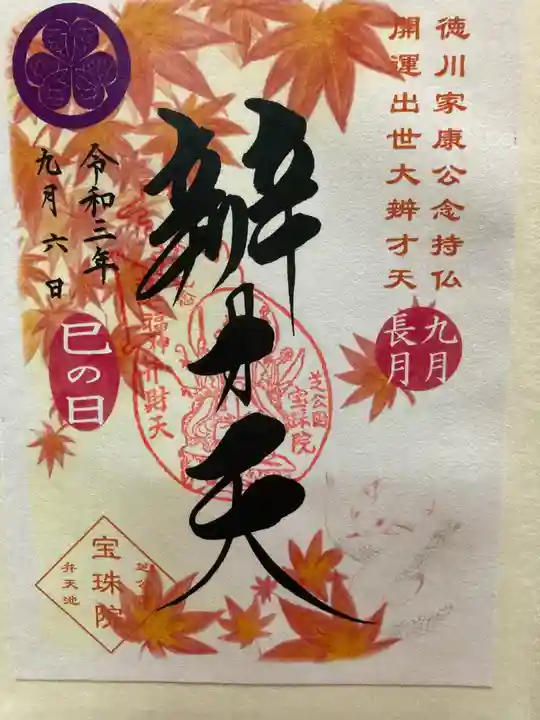 徳川家康公念持仏
開運出世大辨才天
九月
長月
辨才天
芝公園
宝珠院
福神弁財天
令和三年
九月六日
巳の日
宝珠院
弁天池